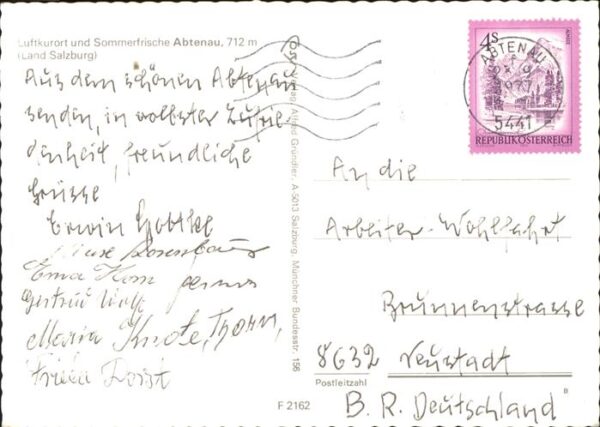 Luftkurort und Sommerfrische Abtenau, 712 m
(Land Salzburg)
Aus dem schönen Abtenau
senden, in vollster Zufrie
denheit, freundliche
Grüsse
Erwin
Rosenbaum
Erna Horn
Gertrud Wolf
Maria Knote, Thorn,
Frieda Horst
F 2162
Alfred Gründler, A-5013 Salzburg, Münchner Bundesstr. 156
4s
ABTENAU
5441
REPUBLIK ÖSTERREICH
An die
Arbeiter-Wohlfahrt
Brunnenstrasse
8632 Neustadt
Postleitzahl
B. R. Deutschland